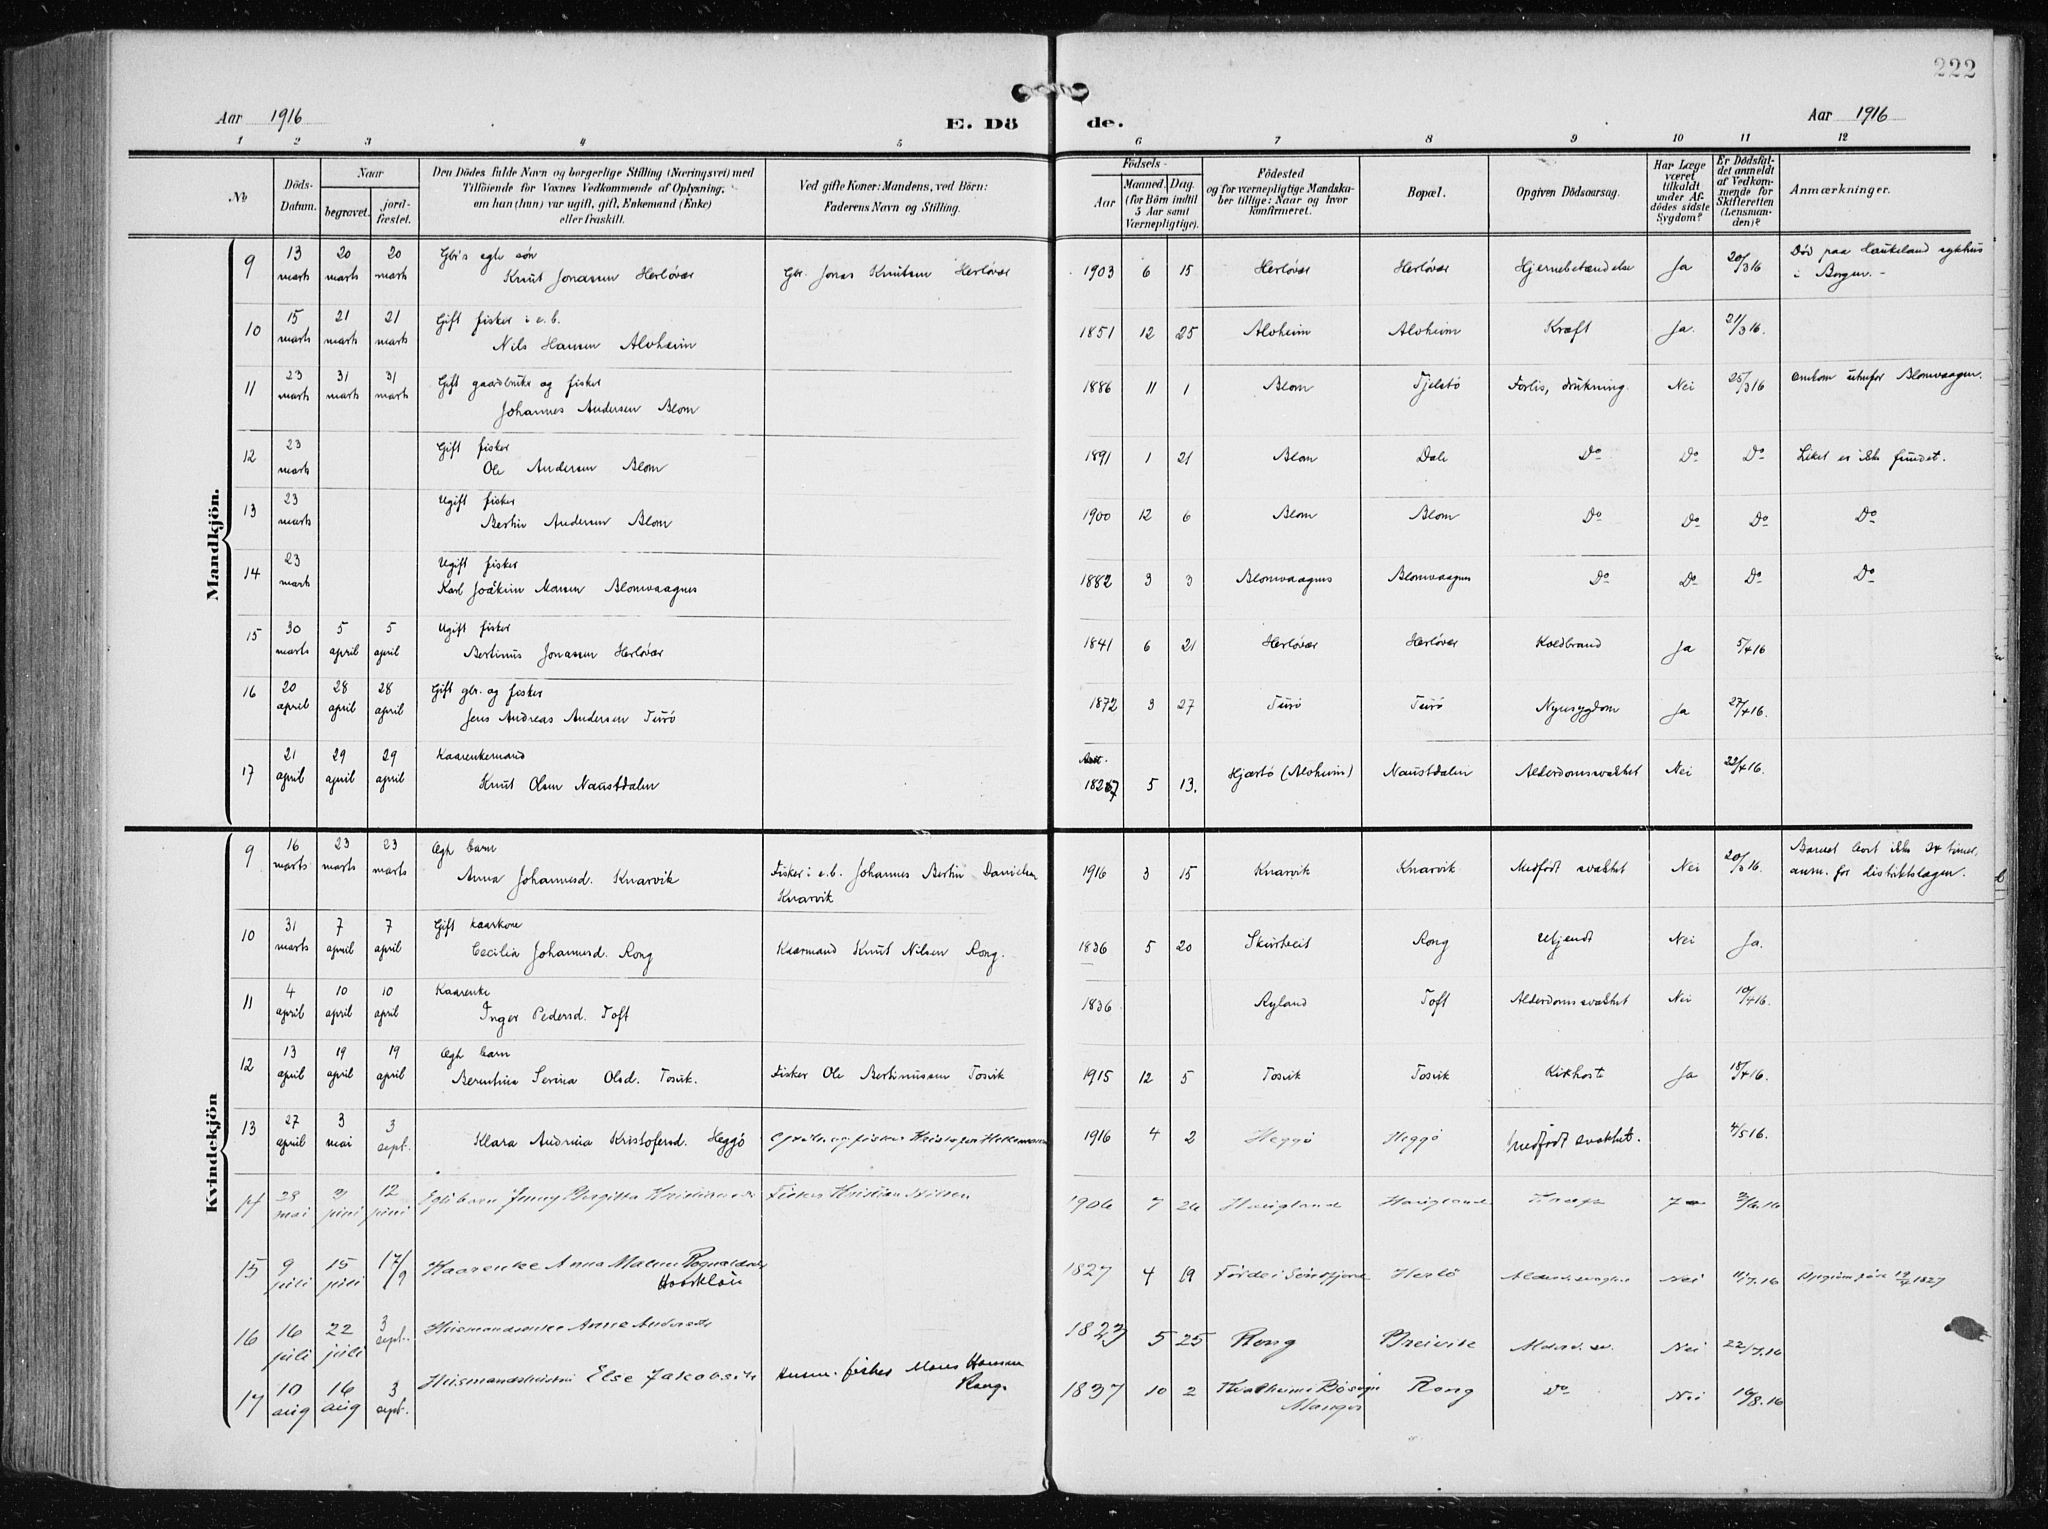 222
Aar 1916
E. Dö
de.
Aar 1916
1 2 3 4 5 6 7 8 9 10 11 12
No
Döds-Datum.
Naar
begravet.
jordfæstet.
Den Dödes fulde Navn og borgerlige Stilling (Næringsvei) med
Tilföiende for Voxnes Vedkommende af Oplysning,
om han (hun) var ugift, gift, Enkemand (Enke)
eller fraskilt.
Ved gifte Koner: Mandens, ved Börn:
Faderens Navn og Stilling.
Födsels-
Aar
Maaned. Dag.
(for Börn indtil
5 Aar samt
Værnepligtige).
Födested
og for værnepligtige Mandskaber
tillige: Naar og hvor
konfirmeret.
Bopæl.
Opgiven Dödsaarsag.
Har Læge
været
tilkaldt
under Afdödes
sidste
Sygdom?
Er Dödsfaldet
anmeldt
af Vedkommende
for
Skifteretten
(Lensmanden)?
Anmærkninger.
Mandkjön.
9 13 marts 20 marts 20 marts Gbr's egte søn
Knut Jonassen Herløvær Gbr. Jonas Knutsen Herløvær 1903 6 15 Herløvær Herløvær Hjernebetændelse Ja 20/3 16 Død paa Haukeland sykhus
i Bergen. -
10 15 marts 21 marts 21 marts Gift fisker i e.b.
Nils Hansen Alvheim 1851 12 25 Alvheim Alvheim Kræft Ja. 21/3 16.
11 23 marts 31 marts 31 marts Gift gaardbruker og fisker
Johannes Andersen Blom 1886 11 1 Blom Tjelstø Forlis, drukning. Nei 25/3 16 Omkom utenfor Blomvaagen.
12 23 marts Gift fisker
Ole Andersen Blom 1891 1 21 Blom Dale Do Do Do Liket er ikke fundet.
13 23 marts Ugift fisker
Bertin Andersen Blom 1900 12 6 Blom Blom Do Do Do Do
14 23 marts Ugift fisker
Karl Joakim Monsen Blomvaagnes 1882 3 3 Blomvaagnes Blomvaagnes Do Do Do Do
15 30 marts 5 april 5 april Ugift fisker
Bertinus Jonassen Herløvær 1841 6 21 Herløvær Herløvær Koldbrand Ja 5/4 16
16 20 april 28 april 28 april Gift gbr. og fisker
Jens Andreas Andersen Turø 1872 3 27 Turø Turø Nyresygdom Ja 27/4 16.
17 21 april 29 april 29 april Kaarenkemand
Knut Olsen Naustdalen 1827 5 13. Hjærtø (Alvheim) Naustdalen Alderdomssvakhet Nei 22/4 16.
Kvindekjön
9 16 marts 23 marts 23 marts Egte barn
Anna Johannesd. Knarvik Fisker i e.b. Johannes Bertin Danielsen
Knarvik 1916 3 15 Knarvik Knarvik Medfødt svakhet Nei 20/3 16. Barnet levet ikke 24 timer,
anm. for distriktslægen.
10 31 marts 7 april 7 april Gift kaarkone
Cecilia Johannesd. Rong Kaarmand Knut Nilsen Rong. 1836 5 20 Skurtveit Rong Ukjendt Nei Ja.
11 4 april 10 april 10 april Kaarenke
Inger Pedersd. Toft 1836 Ryland Toft Alderdomssvakhet Nei 10/4 16.
12 13 april 19 april 19 april Egte barn
Berentina Serina Olsd. Tosvik. Fisker Ole Bertinussen Tosvik 1915 12 5 Tosvik Tosvik Kikhoste Ja 18/4 16.
13 27 april 3 mai 3 sept. Klara Andrina Kristofersd. Heggø 1916 4 2 Heggø Heggø Medfødt svakhet. 4/5 16.
14 28 mai 3 juni 12 juni Egte barn Jenny Birgitta Kristiansd. Fisker Kristian Nilsen 1906 7 26 Haugland Haugland 3/6.16
15 9 juli 15 juli 17/9 Kaarenke Anna Malene Rognaldsd. 1827 4 19 Førde i Søndfjord Herlø Nei 11/7.16 19/4 1827
16 16 juli 22 juli 3 sept. Husmandsenke Anne Andersd. 1823 5 25 Rong Breivik Nei 22/7.16
17 10 aug 16 aug 3 sept. Else Jakobsd. Husm. fisker Mons Hansen
Rong. 1837 10 2 Rong Do Nei 16/8.16
Manger